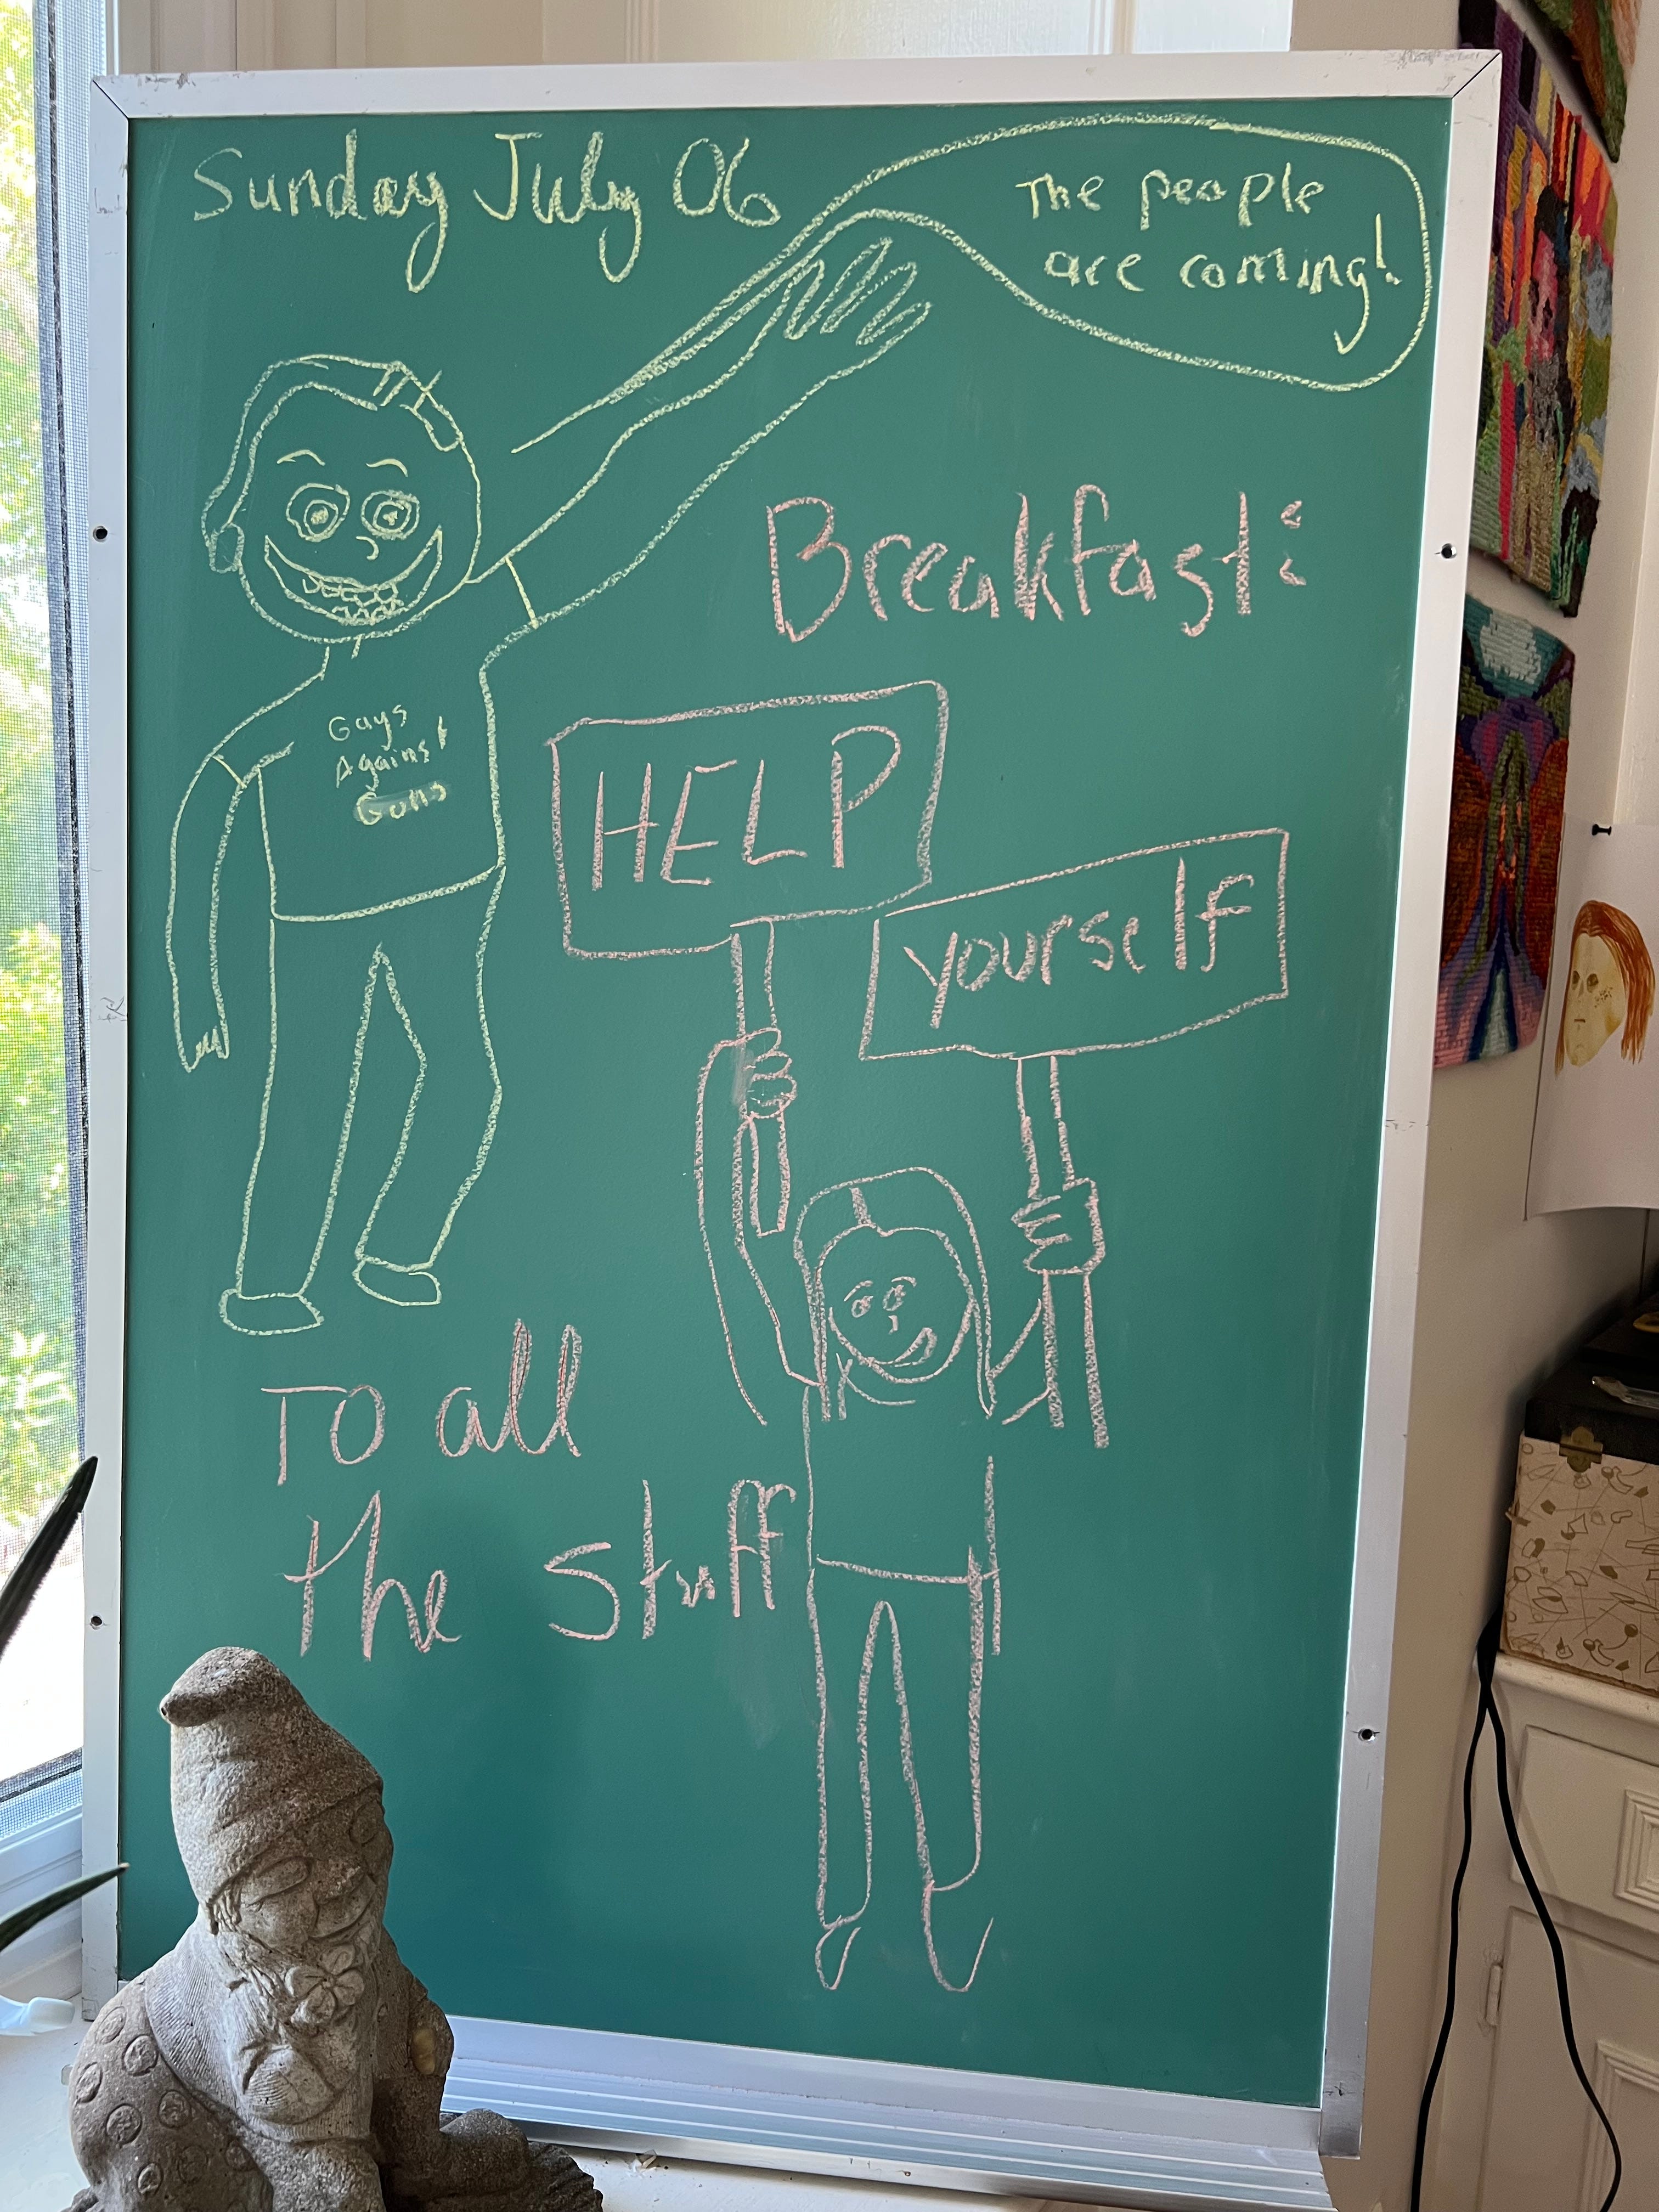 Sunday July 06
The people
are coming!
Gays
Against
Guns
Breakfast:
HELP
yourself
To all
the stuff